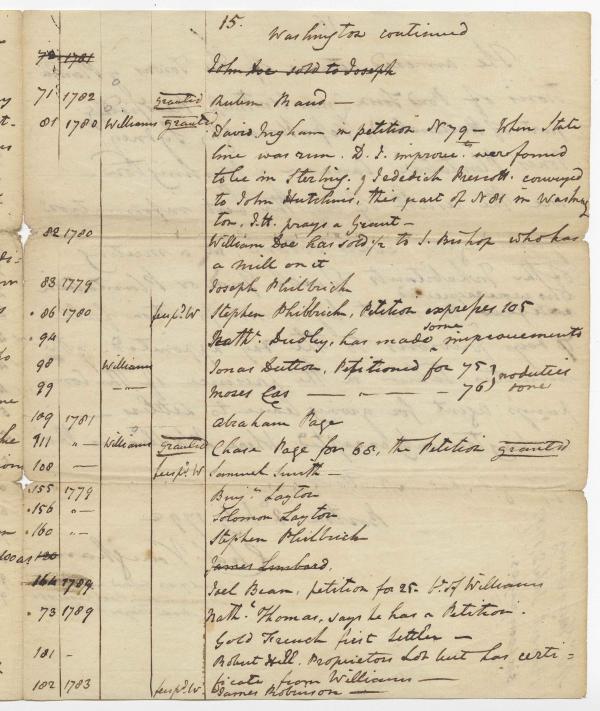 15.
Washington continued
72 1781 John Doe sold to Joseph
71 1782 granted Ruben Brand —
81 1780 Williams granted David Ingham in petition N 79 — When State
line was run. D. I. improve.ts were found
to be in Sterling. & Jedidich Prescott. conveyed
to John Hutchins, this part of N 81 in Washing
ton, J.H. prays a Grant —
82 1780 William Doe has sold to J. Bishop who has
a mill on it
83 1779 Joseph Philbrick
86 1780 susp.d W Stephen Philbrick, Petition expresses 105
94 Nath.l Dudley, has made some improvements
98 Williams Jonas Dutton, Petitioned for 75 } no duties
99 " Moses — " — 76 } done
109 1781 Abraham Page
111 " Williams granted Chase Page for 65, the Petition granted
108 — susp.d W Samuel Smith —
155 1779 Benj.n Layton
156 " Solomon Layton
160 " Stephen Philbrick
100 as 120 James Lombard.
164 1789 Joel Bean, petition for 25. b.t of Williams
73 1789 Nath.l Thomas, says he has a Petition.
Gold French first settler —
181 - Robert Hill. Proprietors Lot but has certi =
ficate from Williams —
102 1783 susp.d W James Robinson —